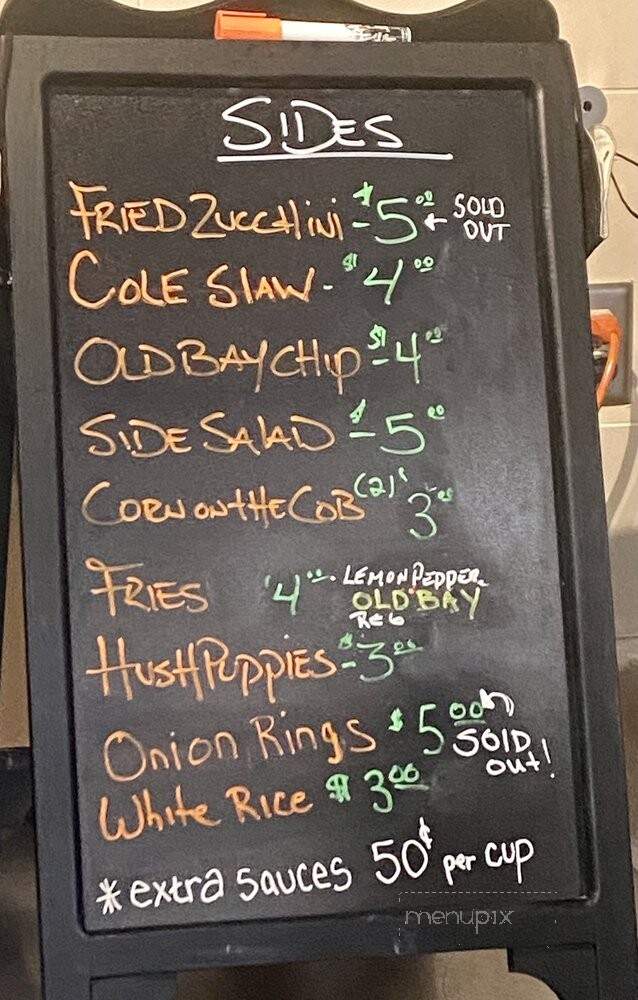 SIDES
FRIED ZUCCHINI - $5.00 ← SOLD OUT
COLE SLAW - $4.00
OLD BAY CHIP - $4.00
SIDE SALAD - $5.00
CORN ON THE COB (2) $3.00
FRIES $4.00 - LEMON PEPPER
OLD BAY
REG
HUSHPUPPIES - $3.00
Onion Rings $5.00 SOLD out!
White Rice $3.00
* extra sauces 50¢ per cup
menupix